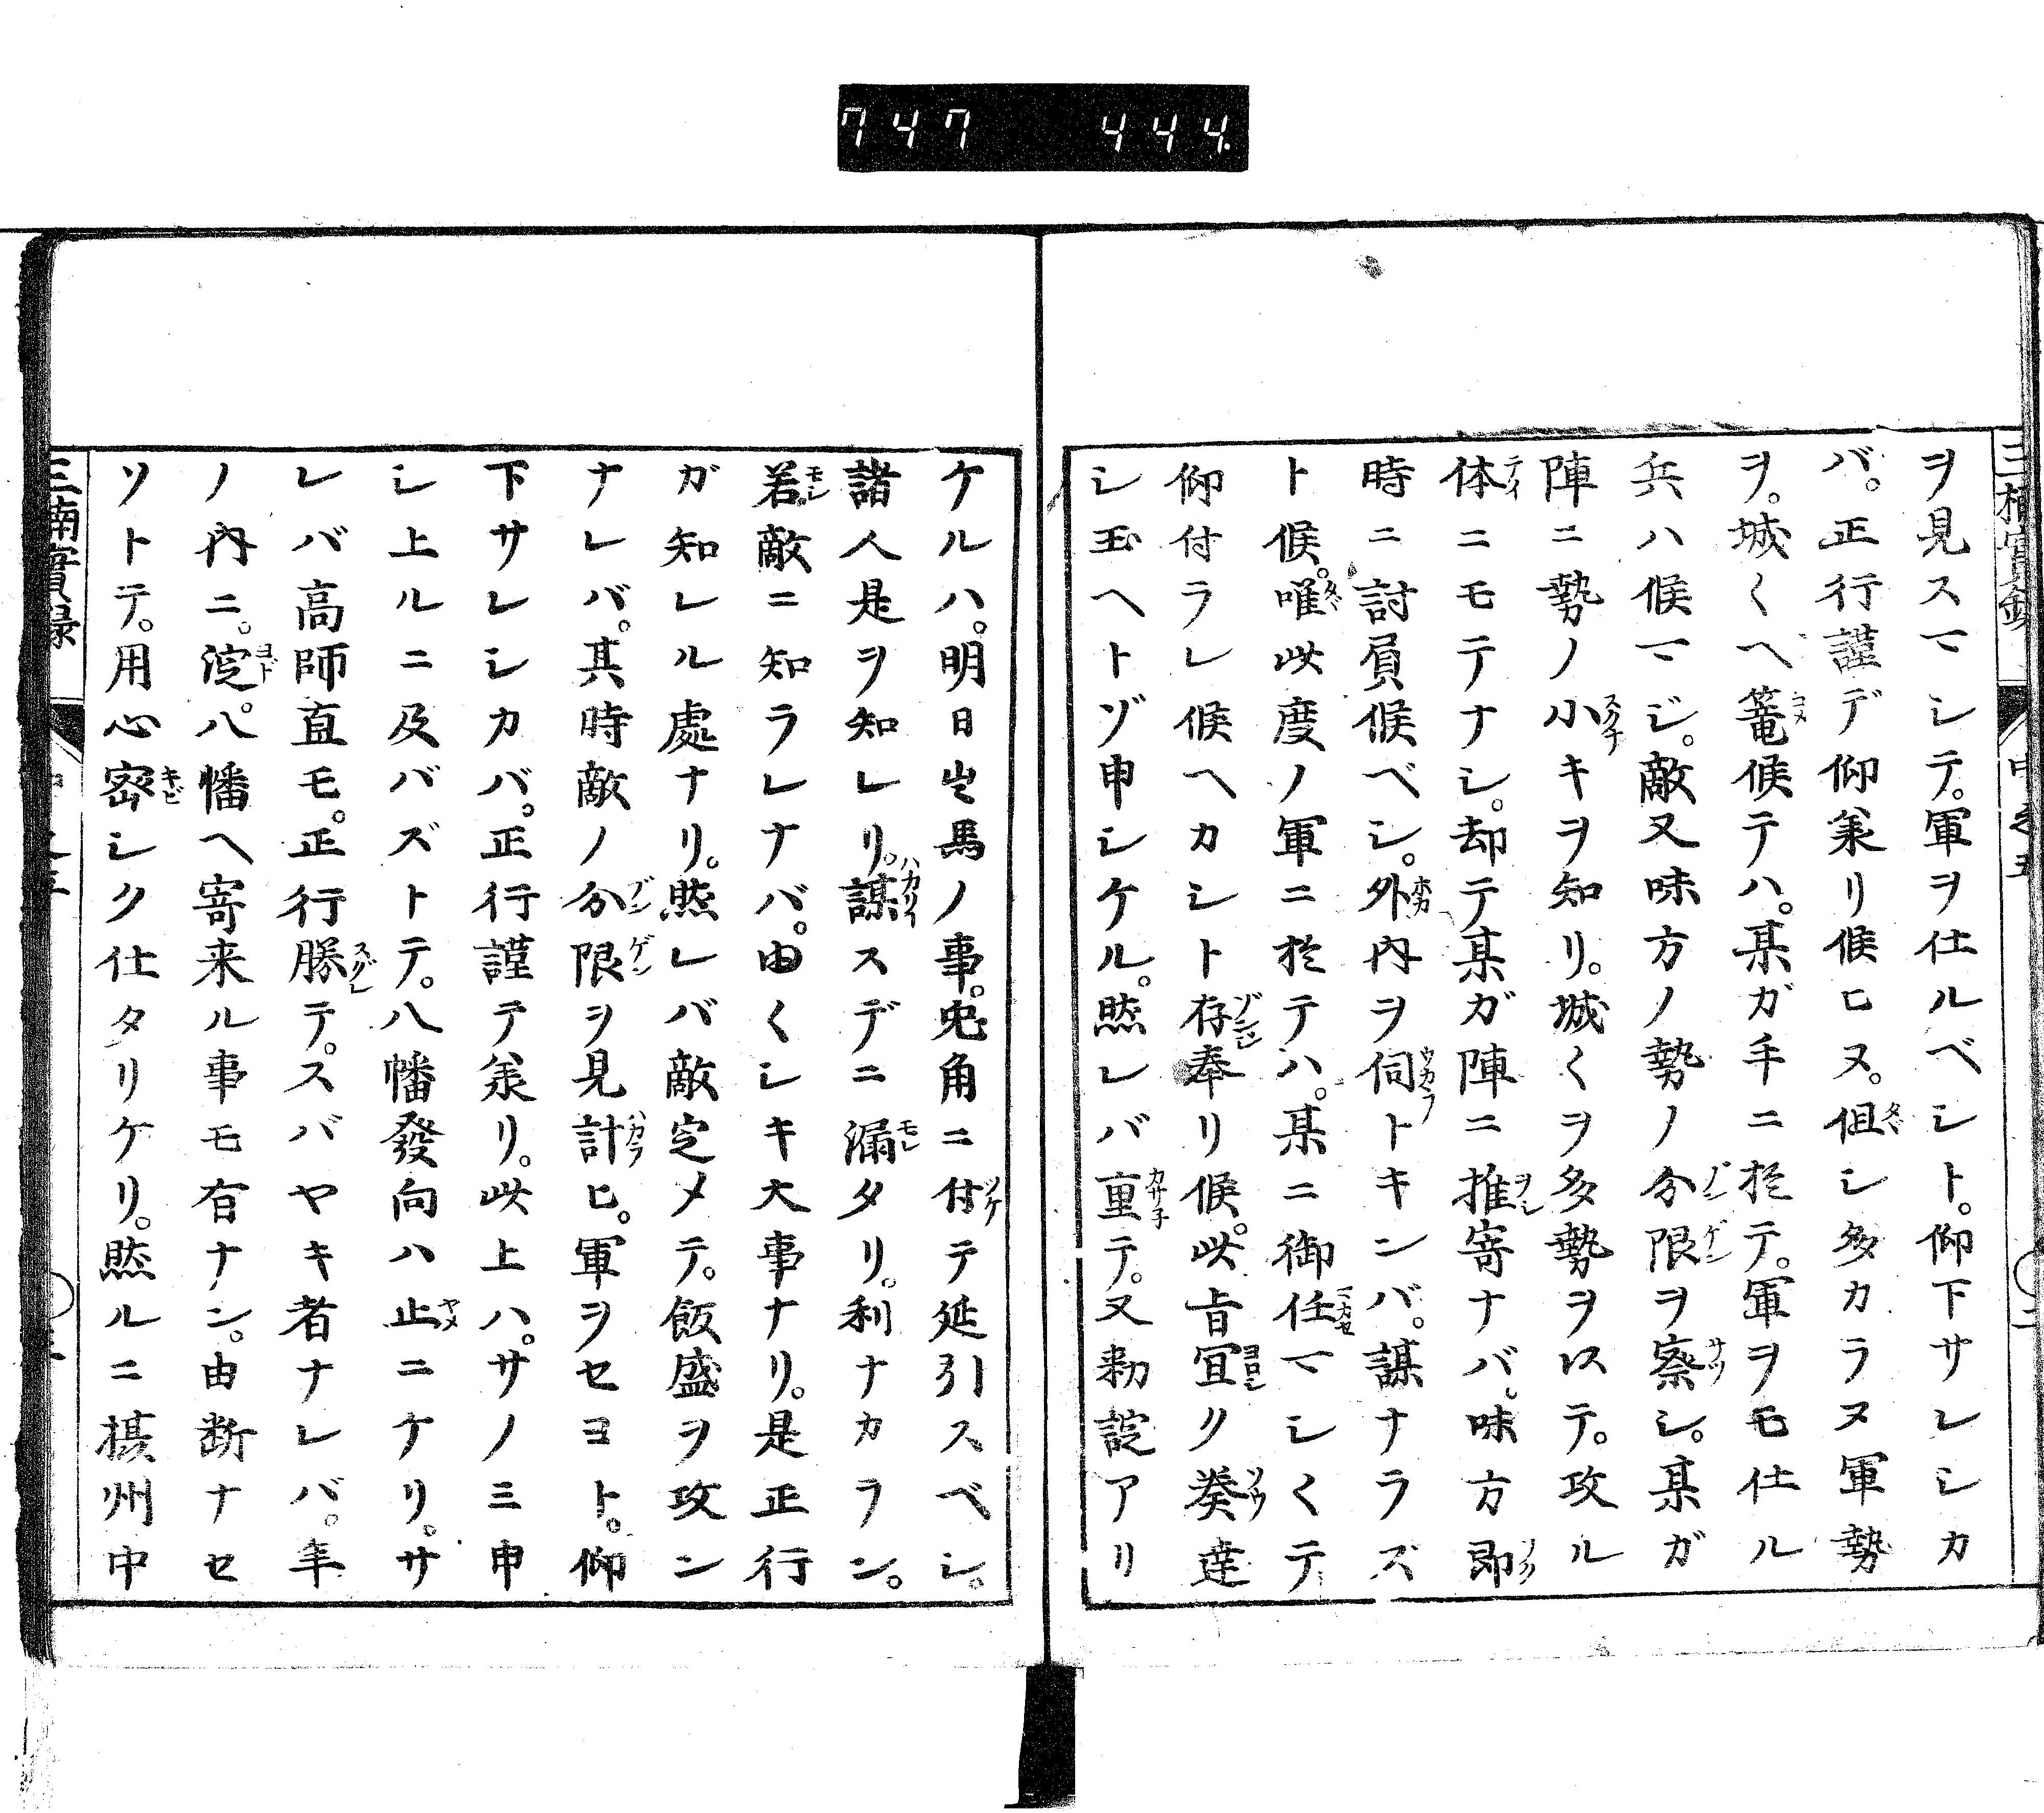 747 444.
ヲ見スマシテ。軍ヲ仕ルベシト。仰下サレシカ
バ。正行謹デ仰奉リ候ヒヌ。但シ多カラヌ軍勢
ヲ。城〱ヘ篭候テハ。某ガ手ニ於テ。軍ヲモ仕ル
兵ハ候マジ。敵又味方ノ勢ノ分限ヲ察シ。某ガ
陣ニ勢ノ小キヲ知リ。城〱ヲ多勢ヲ以テ。攻ル
体ニモテナシ。却テ某ガ陣ニ推寄ナバ。味方即
時ニ討負候ベシ。外内ヲ伺トキンバ。謀ナラズ
ト候。唯此度ノ軍ニ於テハ。某ニ御任マシ〱テ
仰付ラレ候ヘカシト存奉リ候。此旨冝ク奏達
シ玉ヘトゾ申シケル。然レバ重テ。又勅諚アリ
ケルハ。明日出馬ノ事。兎角ニ付テ延引スベシ。
諸人是ヲ知レリ。謀スデニ漏タリ。利ナカラン。
若敵ニ知ラレナバ。由〱シキ大事ナリ。是正行
ガ知レル處ナリ。然レバ敵定メテ。飯盛ヲ攻ン
ナレバ。其時敵ノ分限ヲ見計ヒ。軍ヲセヨト。仰
下サレシカバ。正行謹テ承リ。此上ハ。サノミ申
シ上ルニ及バズトテ。八幡發向ハ止ニケリ。サ
レバ高師直モ。正行勝テ。スバヤキ者ナレバ。年
ノ内ニ。淀。八幡ヘ寄来ル事モ有ナン。由断ナセ
ソトテ。用心密シク仕タリケリ。然ルニ摂州中
三楠實録